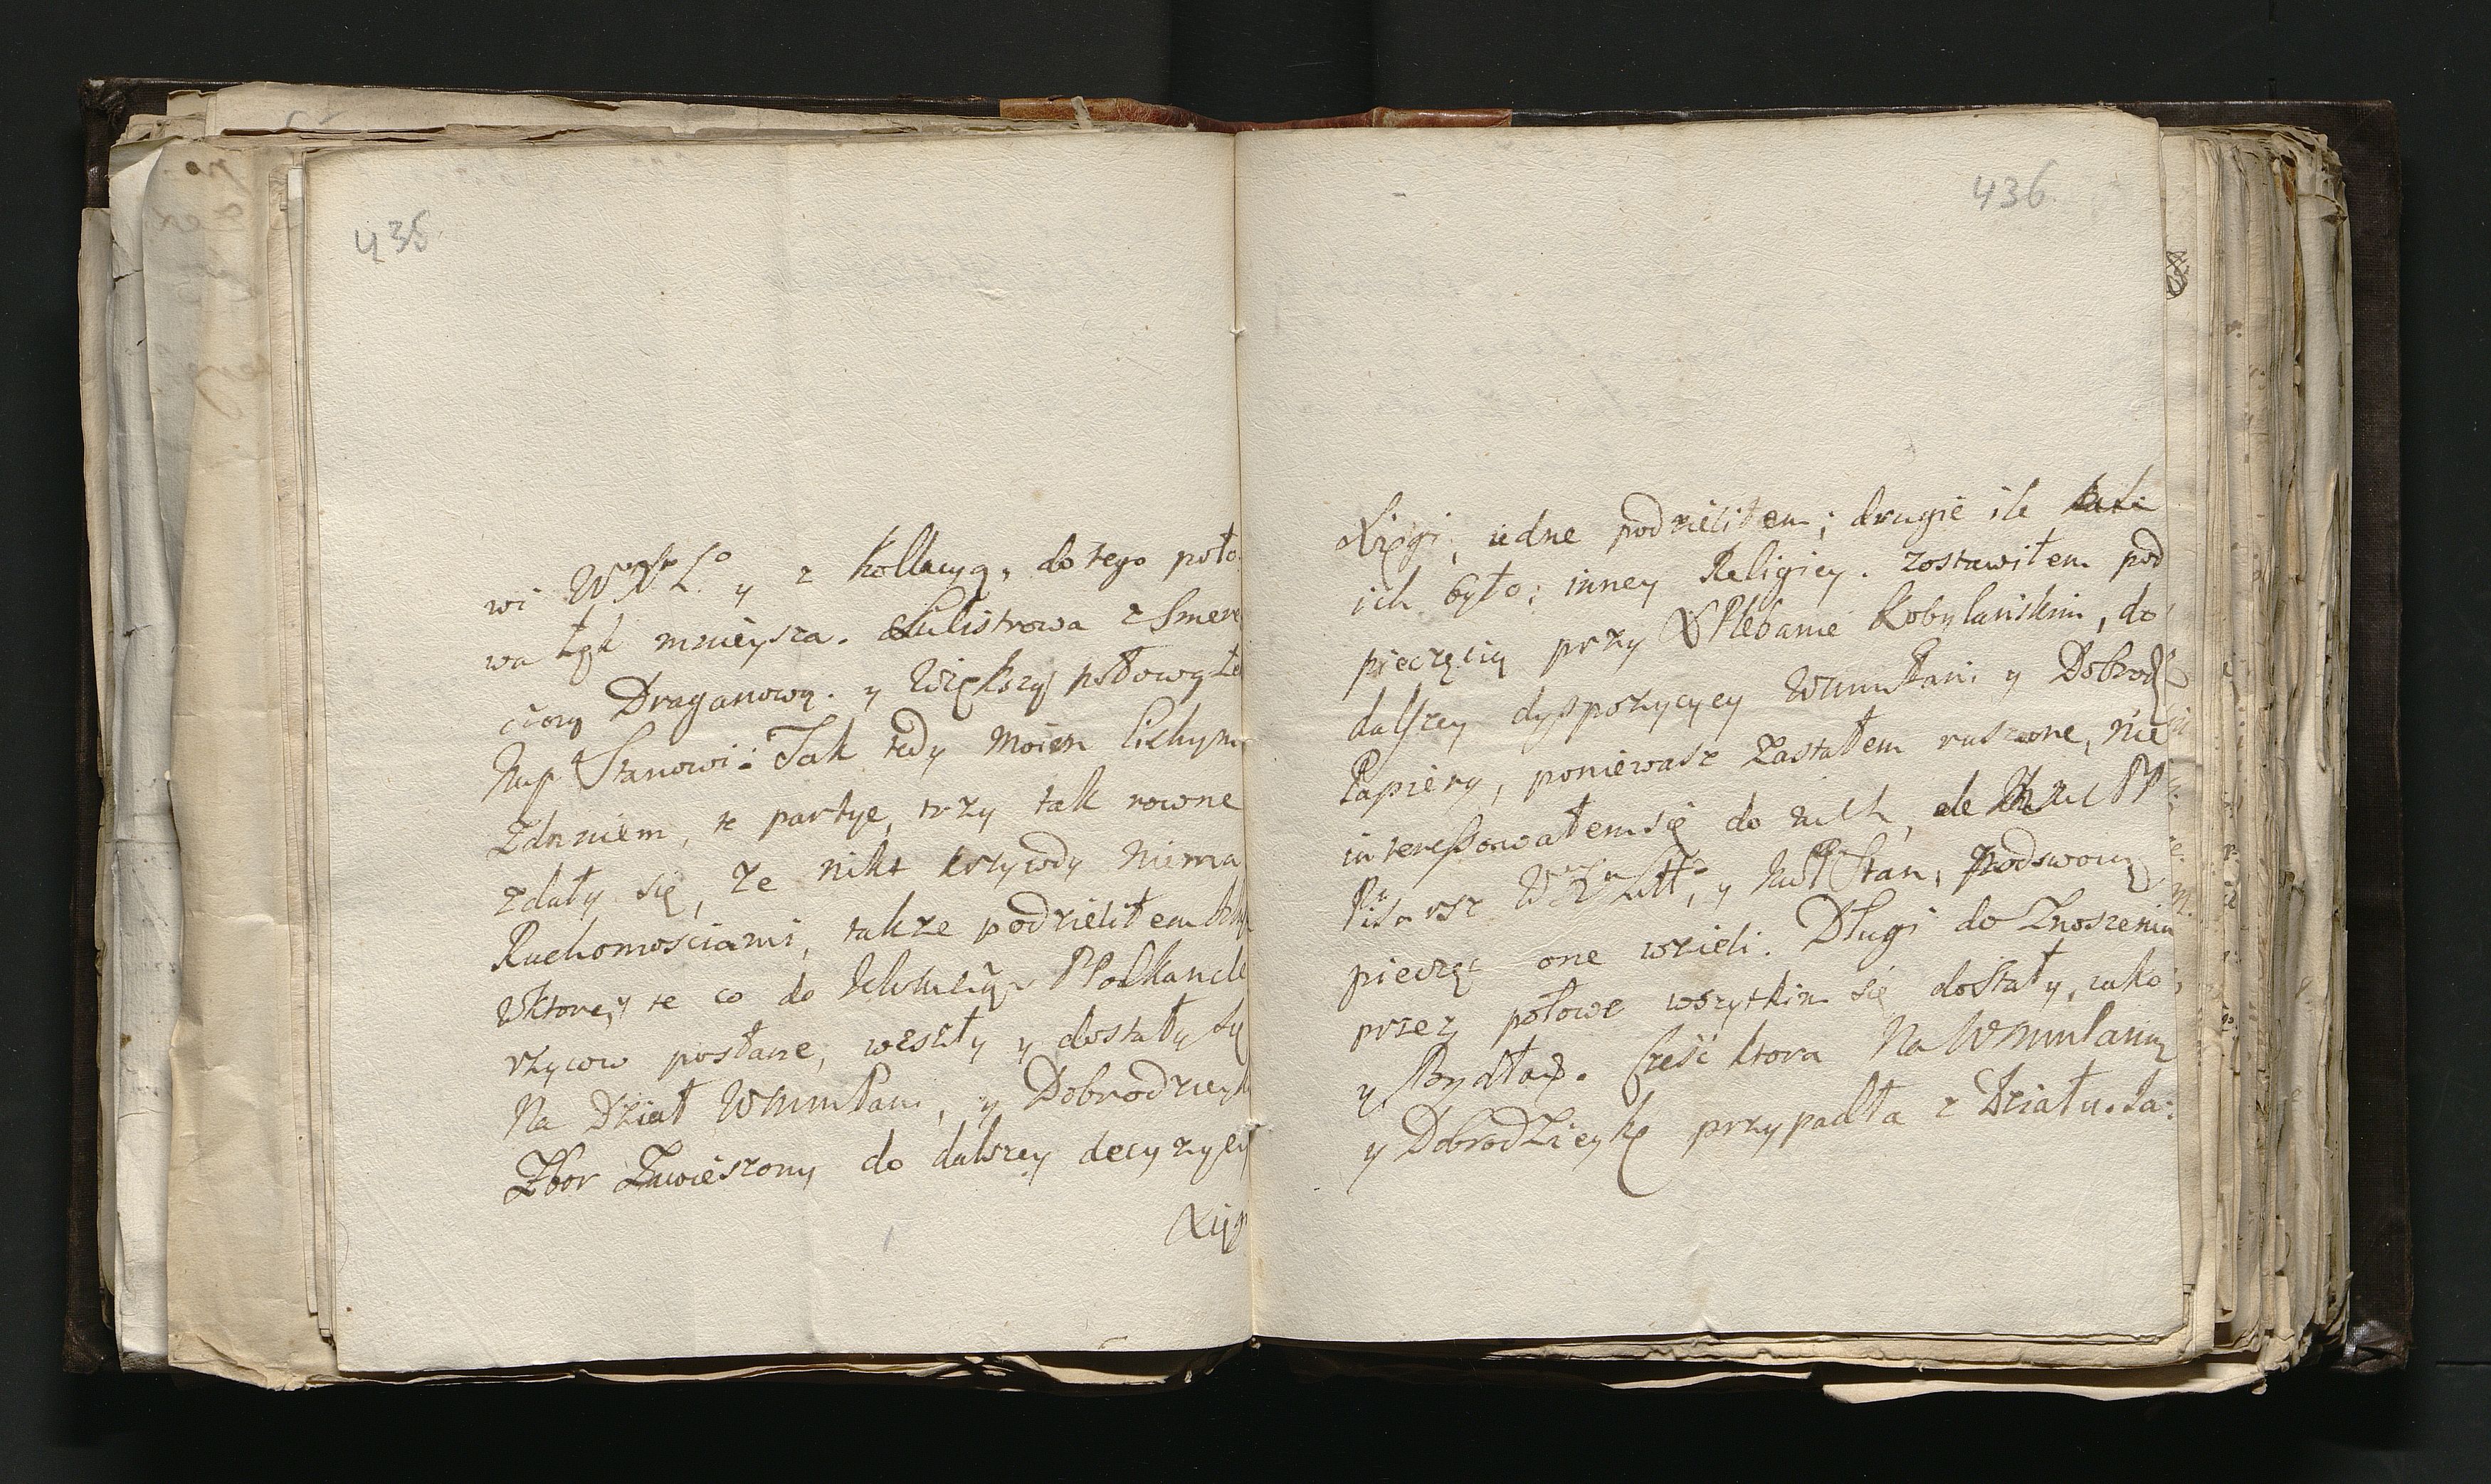 435
wi y z kollacyą, do tego poło
wa łąk mnieysza. Sulistrowa z Smere
czoną Draganową. y większą połową łą
Stanowi: Tak tedy moiem lichym
zdaniem, te partye, trzy tak rowne
zdały się, że nikt krzywdy nima
Ruchomosciami, także podzieliłem
wktorey te co do
rzycow posłane, weszły y dostały się
Na Dział Pani, y Dobrodzieyk
Zbor Zawieszony do dalszey decyzyey
Xięg
436
Xięgi, iedne podzieliłem; drugie ile
ich było; inney Religiey. zostawiłem pod
pieczęcią przy X Plebanie Kobylańskim, do
dalszey dyspozycyey Pani y Dobrodz
Papiery, poniewasz zastałem ruszone, nie
interessowałem się do nich, ale
Pisarz y Stan, pod swoią
pieczęć one wzieli. Długi do Znoszenia
przez połowe wszytkim się dostały, iako
y Bydła. Częsć ktora Na
y Dobrodzieykę przypadła z Działu. Ia: